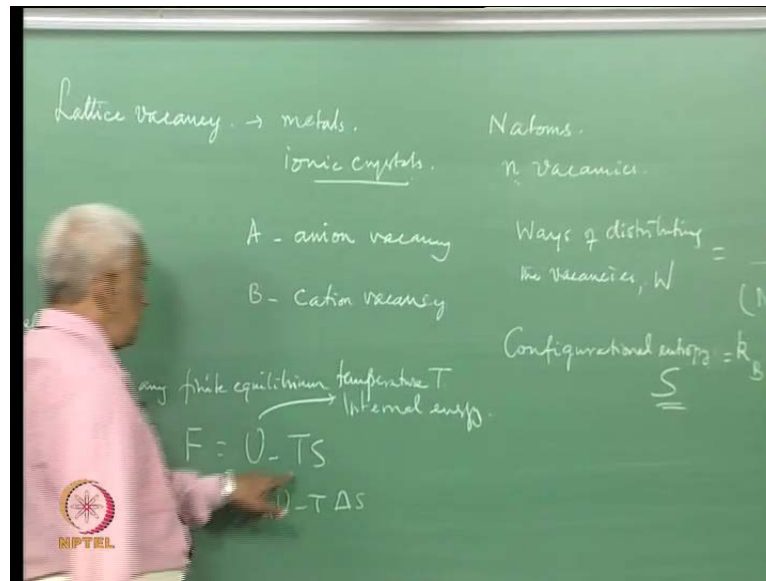 Lattice vacancy. → metals.
ionic crystals.
A - anion vacancy
B - Cation vacancy
any finite equilibrium temperature T
Internal energy.
F = U - TS
U - T ΔS
N atoms.
n vacancies.
Ways of distributing
the vacancies, W =
(N
Configurational entropy = k_B
S
NPTEL